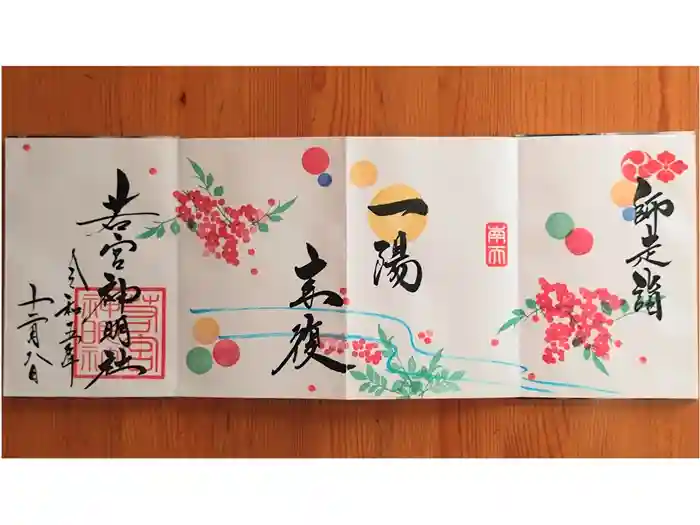 師走詣
一陽
南天
来復
若宮神明社
若宮神明社
令和三年
十二月八日